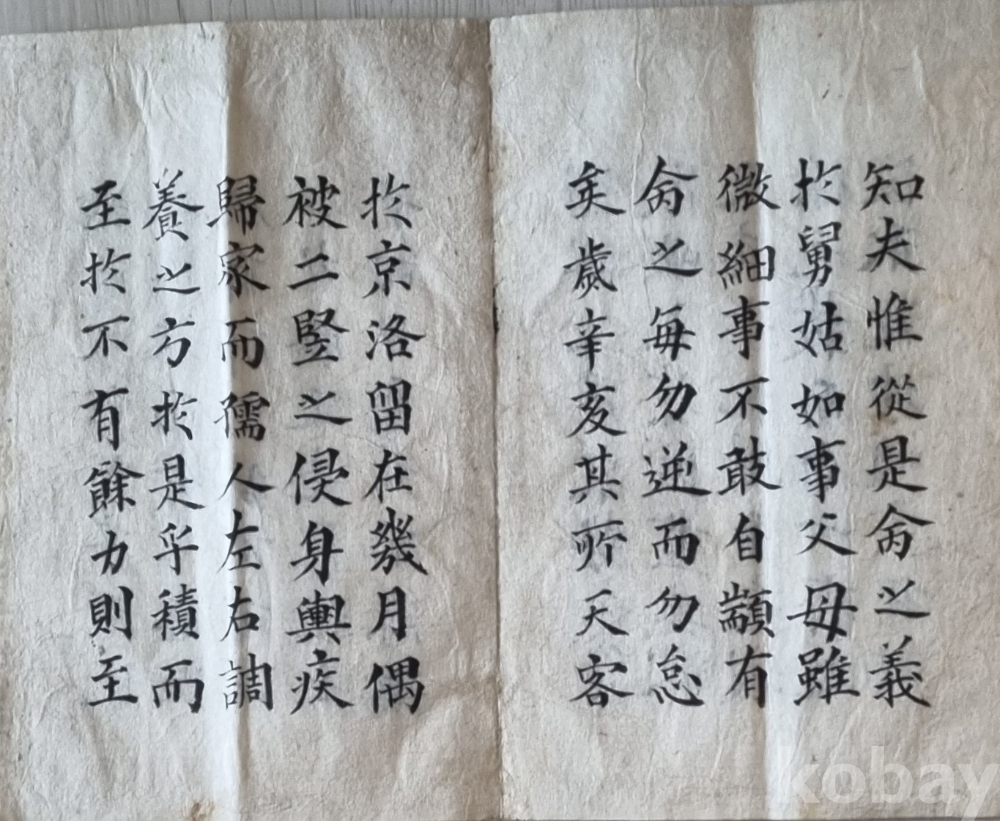 知夫惟從是命之義
於舅姑如事父母雖
微細事不敢自顓有
命之每勿逆而勿怠
矣歲辛亥其所天客
於京洛留在幾月偶
被二竪之侵身輿疾
歸家而孺人左右調
養之方於是乎積而
至於不有餘力則至
kobay